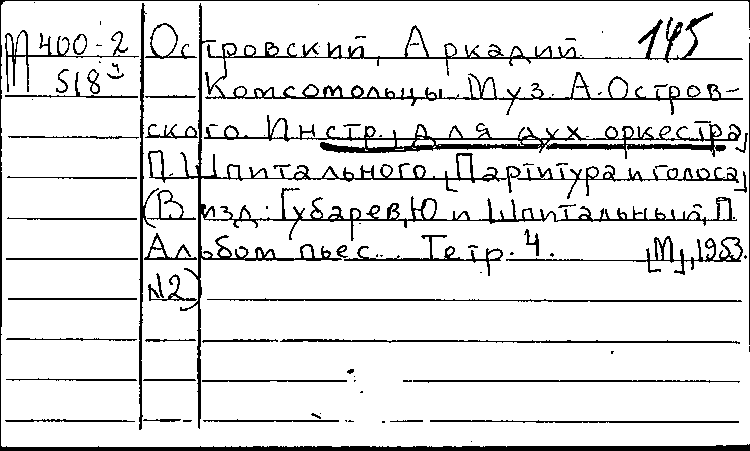 М 400-2 Островский, Аркадий 145
518 Комсомольцы. Муз. А. Остров-
ского. Инстр. [для дух. оркестра]
П. Шпитального. [Партитура и голоса]
(В изд: Губарев, Ю и Шпитальный, П
Альбом пьес... Тетр. 4. [М], 1953.
№2)